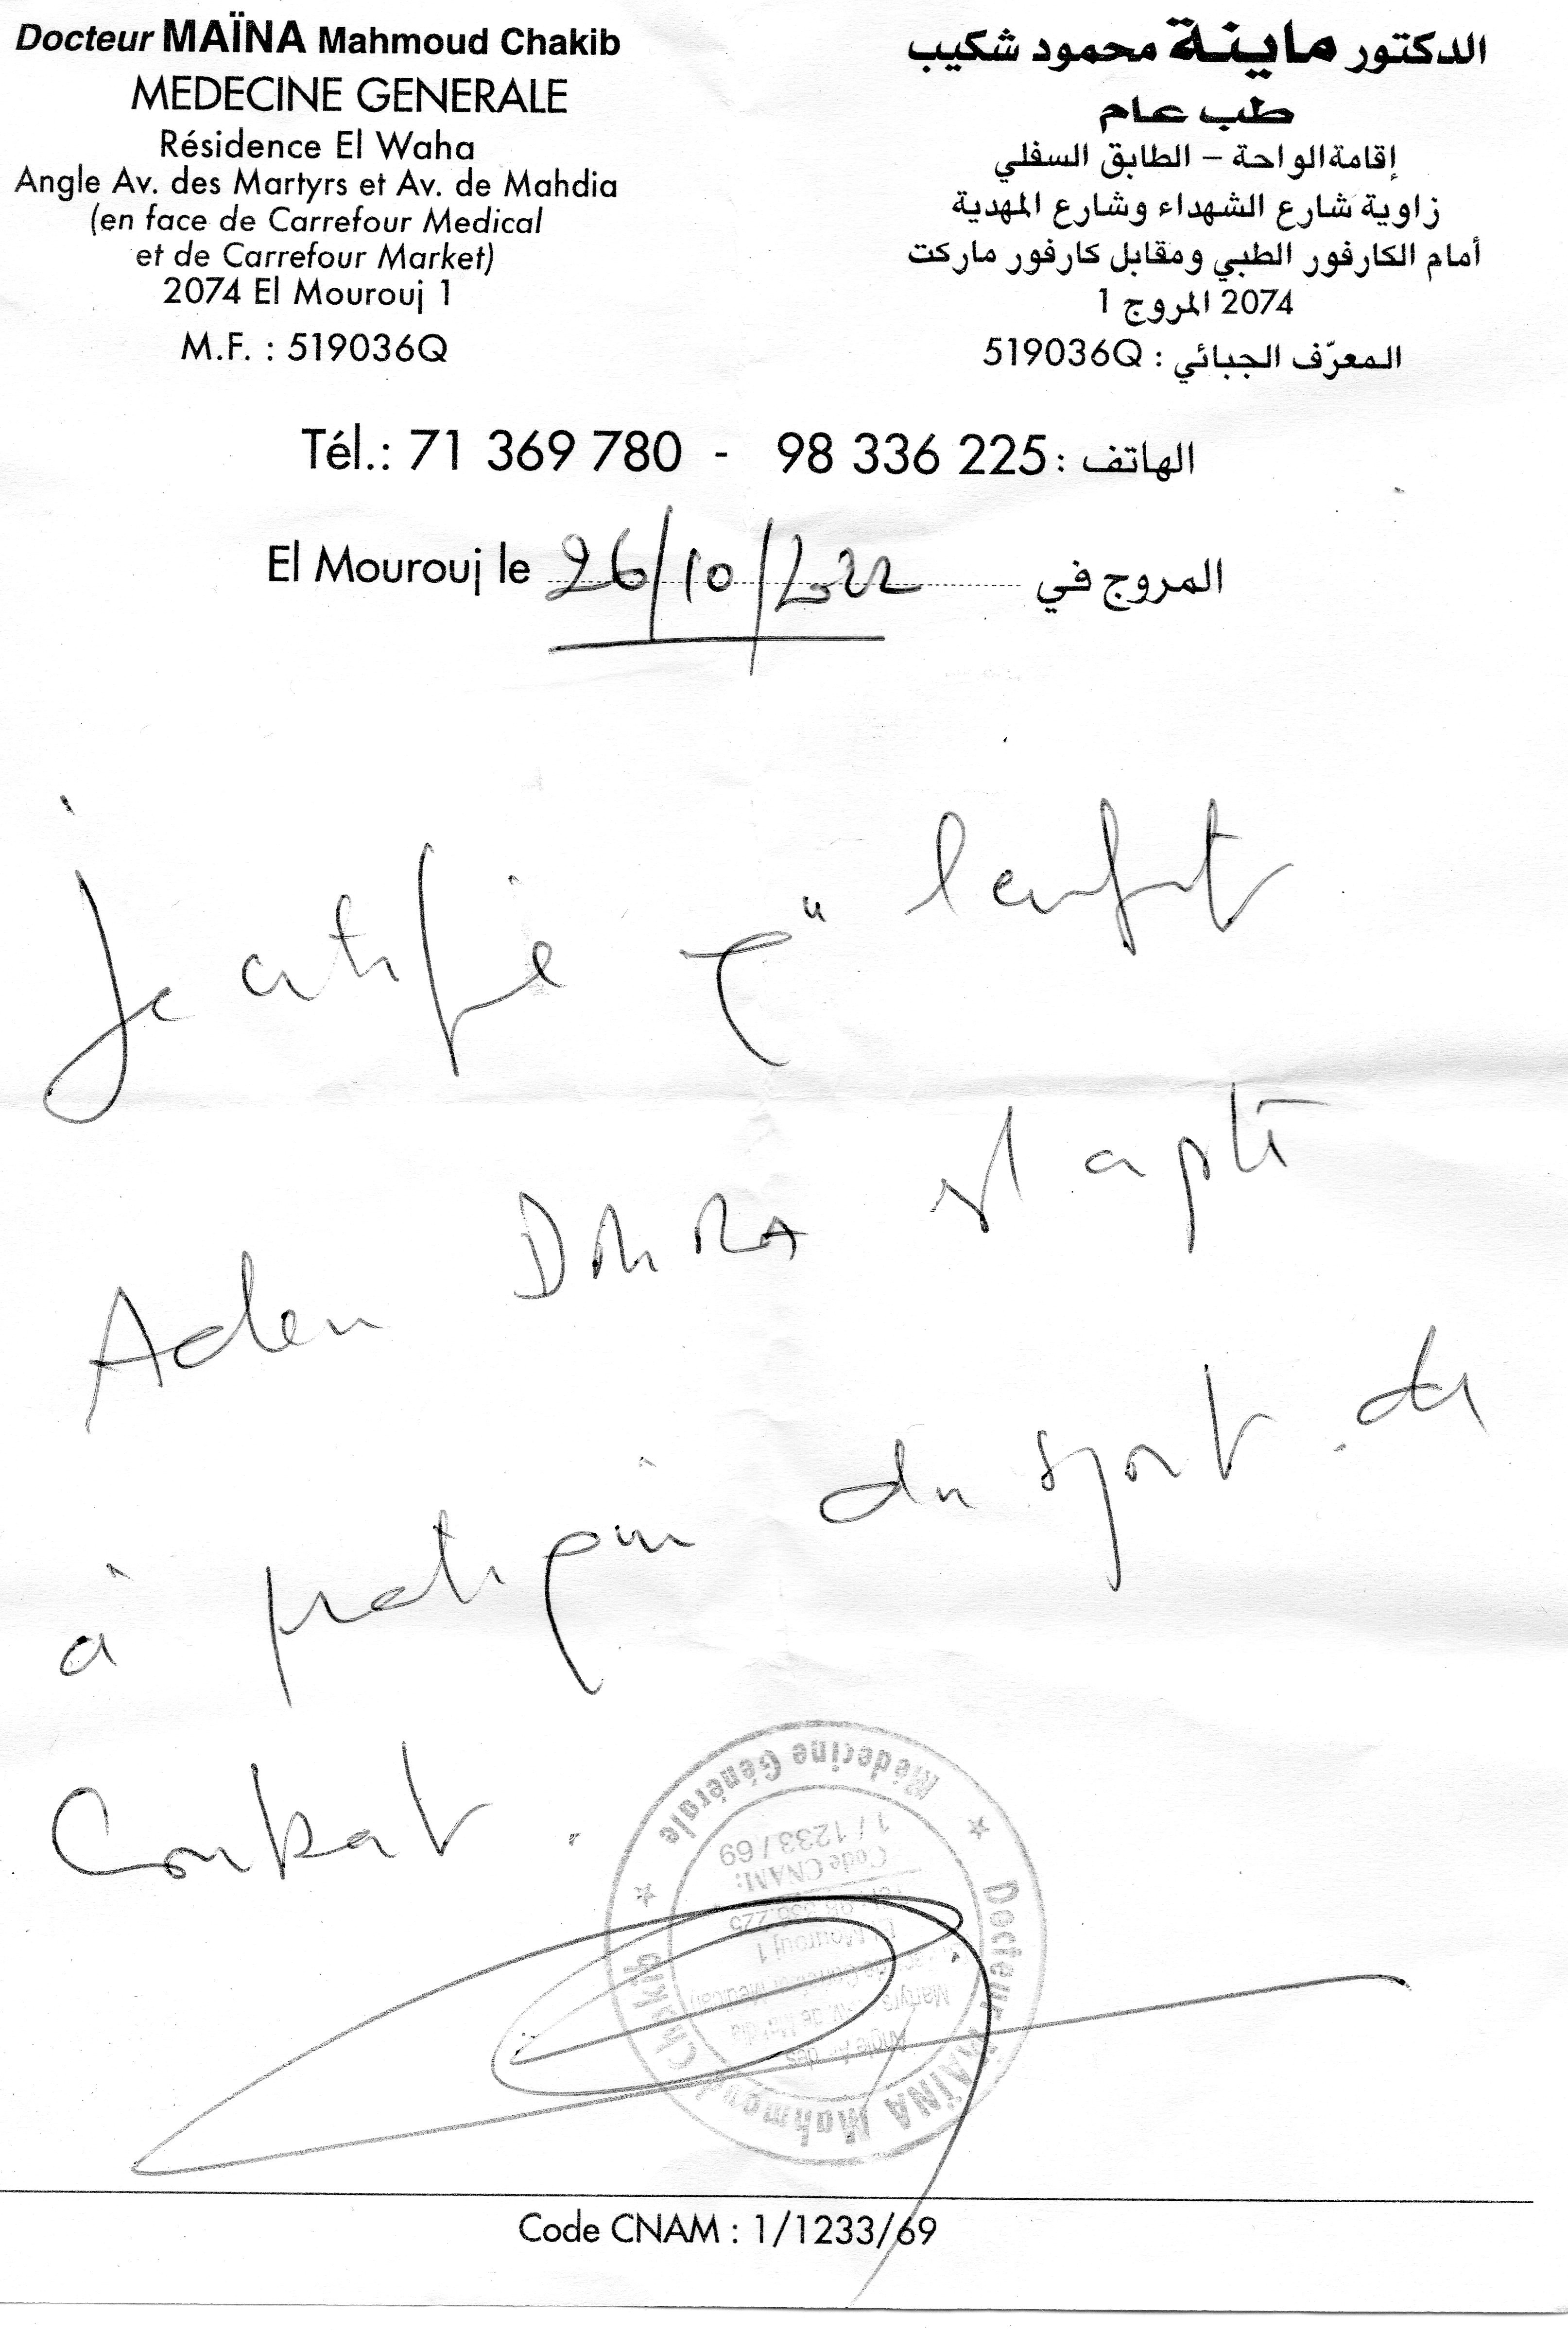 Docteur MAÏNA Mahmoud Chakib
MEDECINE GENERALE
Résidence El Waha
Angle Av. des Martyrs et Av. de Mahdia
(en face de Carrefour Medical
et de Carrefour Market)
2074 El Mourouj 1
M.F. : 519036Q
الدكتور ماينة محمود شكيب
طب عام
إقامة الواحة – الطابق السفلي
زاوية شارع الشهداء وشارع المهدية
أمام الكارفور الطبي ومقابل كارفور ماركت
2074 المروج 1
المعرّف الجبائي : 519036Q
Tél.: 71 369 780 - 98 336 225 : الهاتف
El Mourouj le 26/10/2022 المروج في
Je certifie q" l'enfant
Aden DHRA est apte
à pratiquer du sport de
Combat.
Docteur MAÏNA Mahmoud Chakib
Médecine Générale
Angle Av. des
Martyrs Av. de Mahdia
Carrefour Medical)
El Mourouj 1
98.336.225
Code CNAM:
1 / 1233 / 69
Code CNAM : 1/1233/69